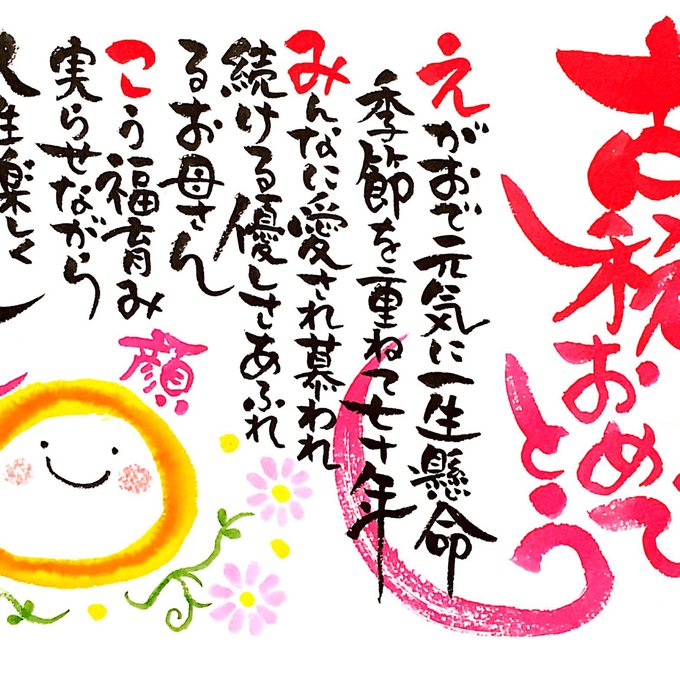 古稀
おめで
とう
えがおで元気に一生懸命
季節を重ねて七十年
みんなに愛され慕われ
続ける優しさあふれ
るお母さん
こう福育み
実らせながら
人生楽しく
顔